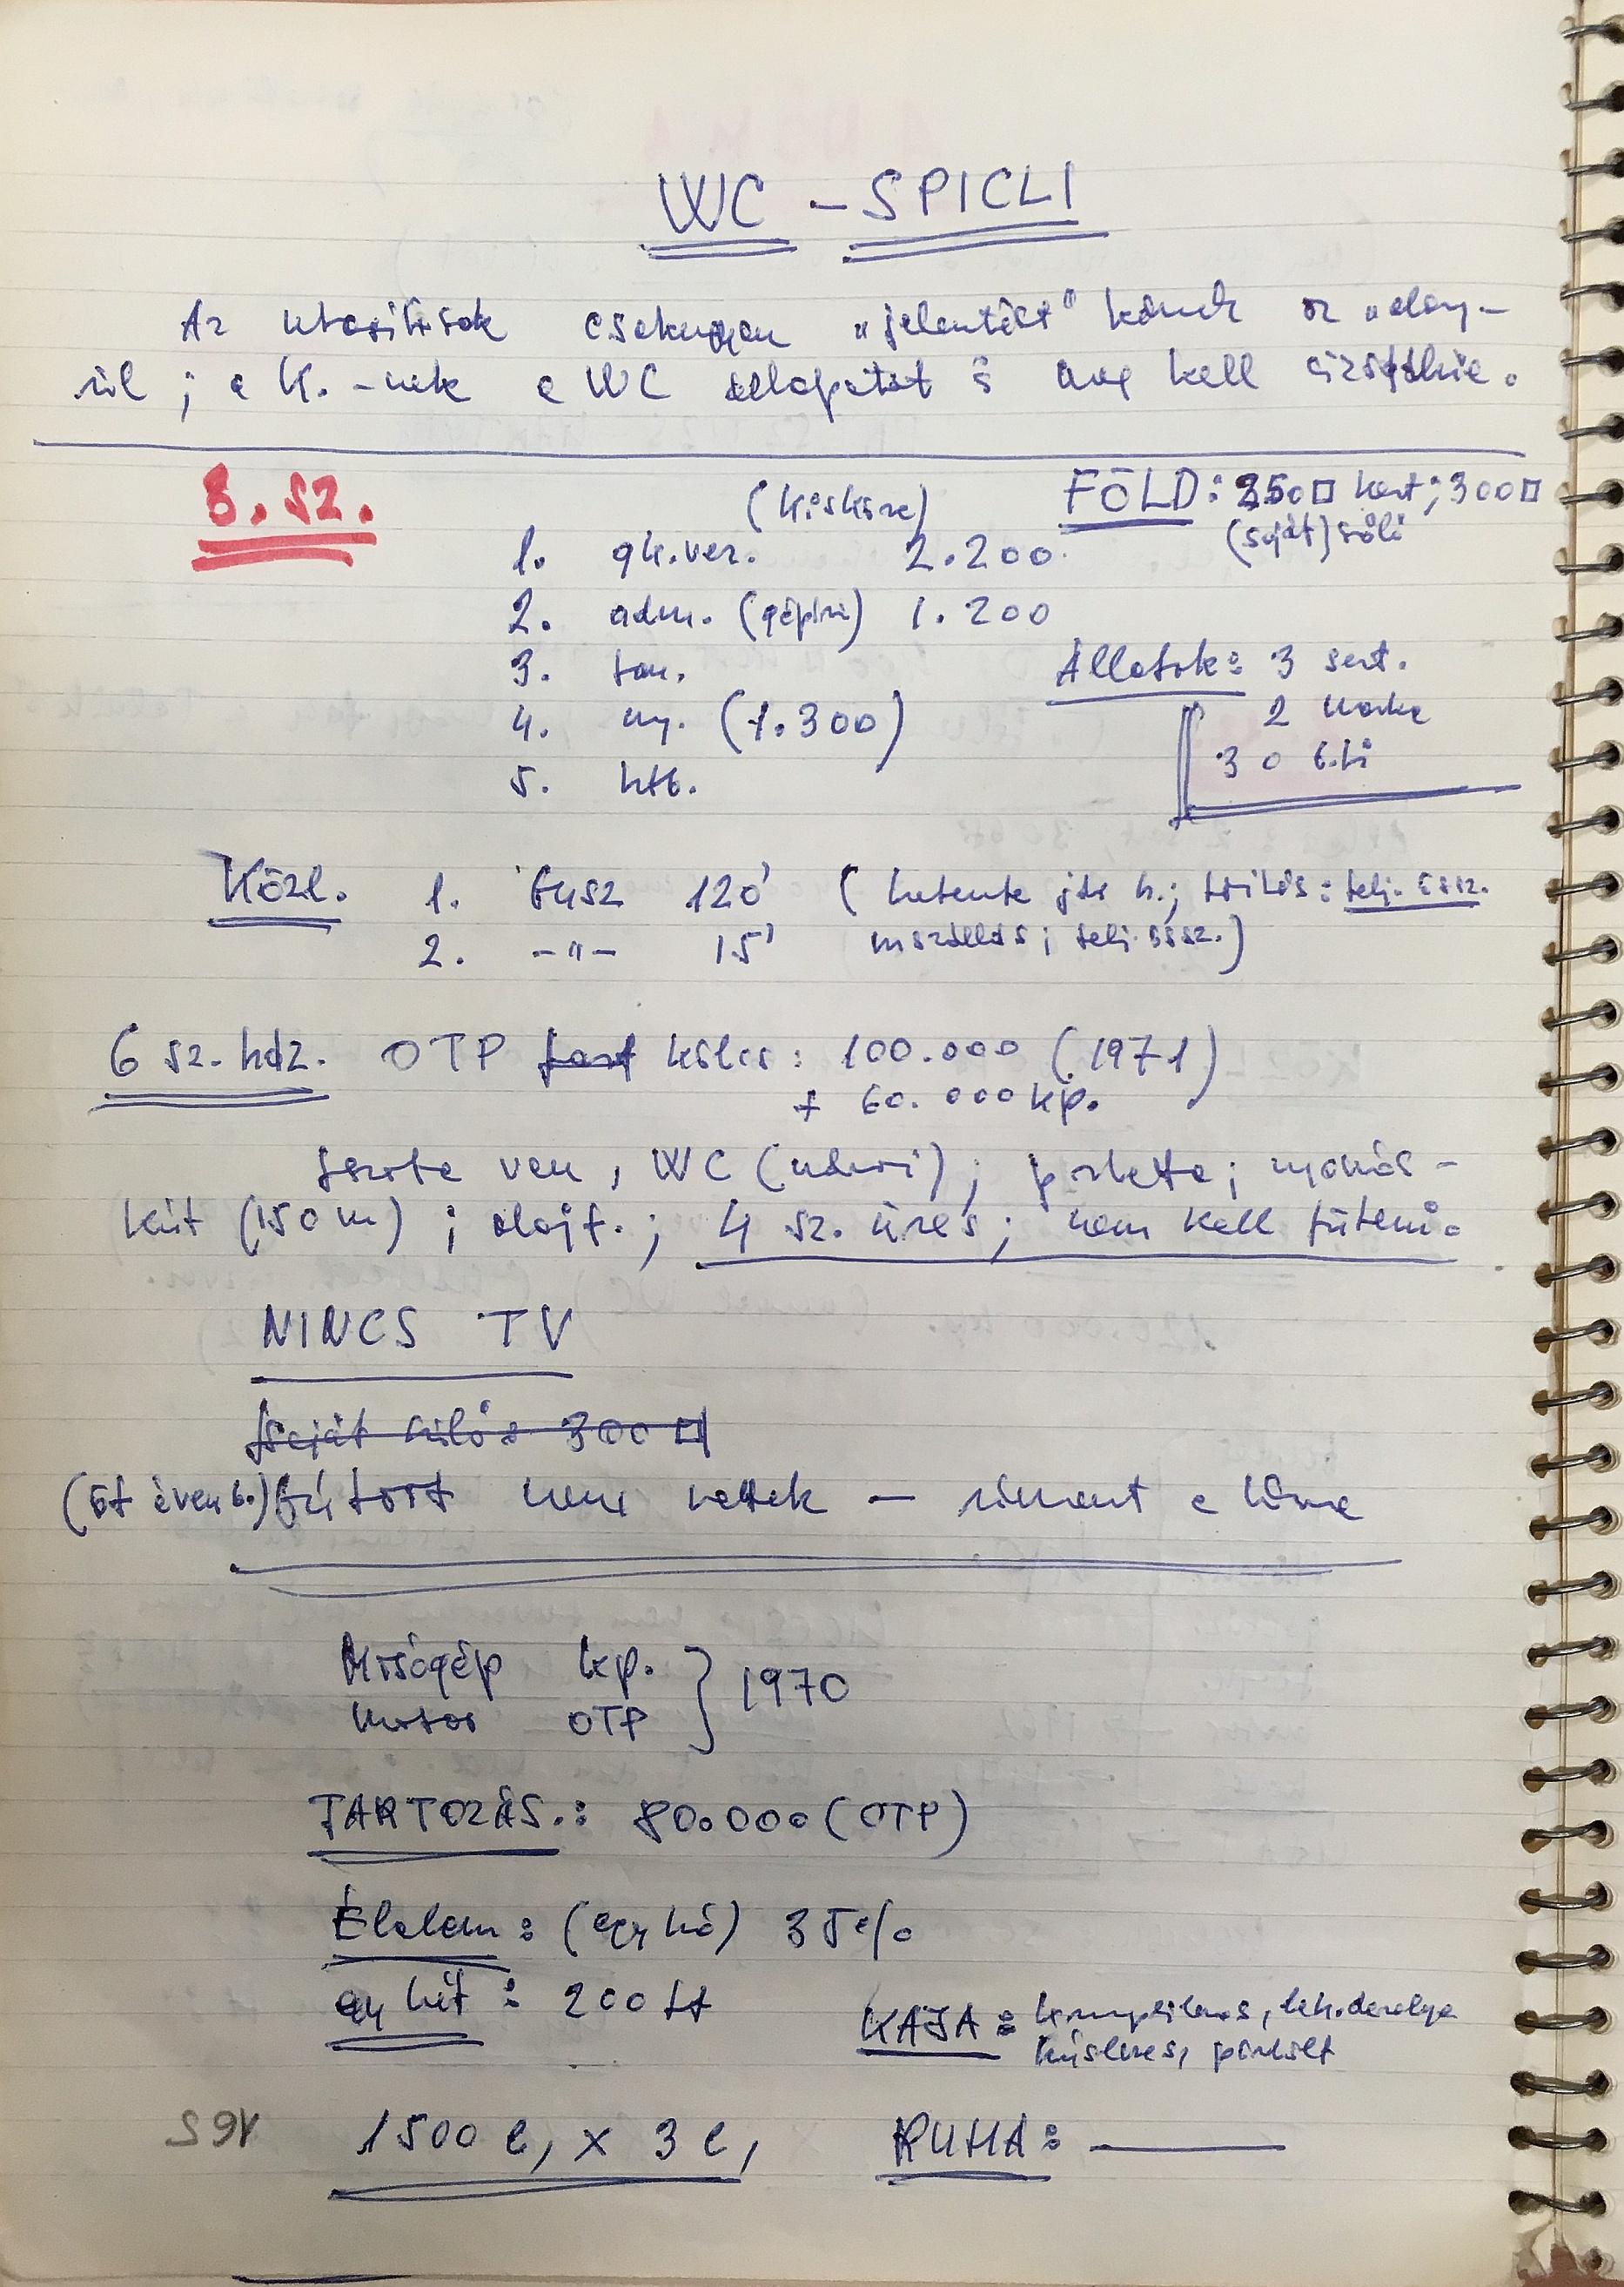 WC - SPICLI
Az utasítások csakugyan „jelentést" kérnek az „alany-
ról ; a K. -nek a WC állapotát is meg kell
3. sz.
(Kisköre)
FÖLD : 350□ kert ; 300□
(saját) szőlő
1. gk.vez. 2.200
2. adm. (gépíró) 1.200
3. tan.
4. ny. (1.300)
5. htb.
Állatok : 3 sert.
2 kacsa
30 b.li
Közl. 1. busz 120' ( hetente jár h.; telj. össz.
2. -"- 15' telj. össz.)
6 sz. ház. OTP kölcs : 100.000 (1971)
+ 60.000 kp.
van , WC (udvari) ; parketta ; nyomós -
kút (150 m) ; olajf. ; 4 sz. üres ; nem kell fűteni.
NINCS TV
saját szőlő : 300 □
(öt éven b.) bútort nem vettek —
Mosógép kp. } 1970
Motor OTP
TARTOZÁS. : 80.000 (OTP)
Élelem : (egy hó) 35%
egy hét : 200 Ft
KAJA : krumplileves, lekv. derelye
húsleves, pörkölt
1500 l, x 3 l, RUHA : ———